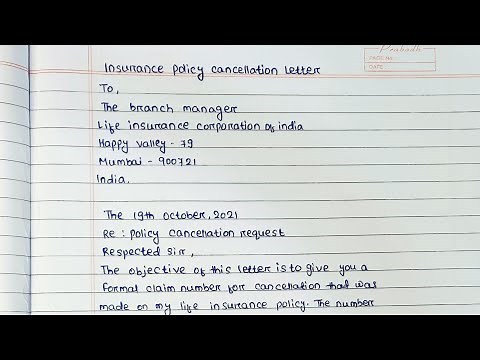 Prakash
PAGE NO.
DATE
Insurance policy cancellation letter
To,
The branch manager
Life insurance corporation of india
Happy valley - 79
Mumbai - 900721
India.
The 19th october, 2021
Re : policy cancellation request
Respected sirr,
The objective of this letter is to give you a
formal claim number for cancellation that was
made on my life insurance policy. The number